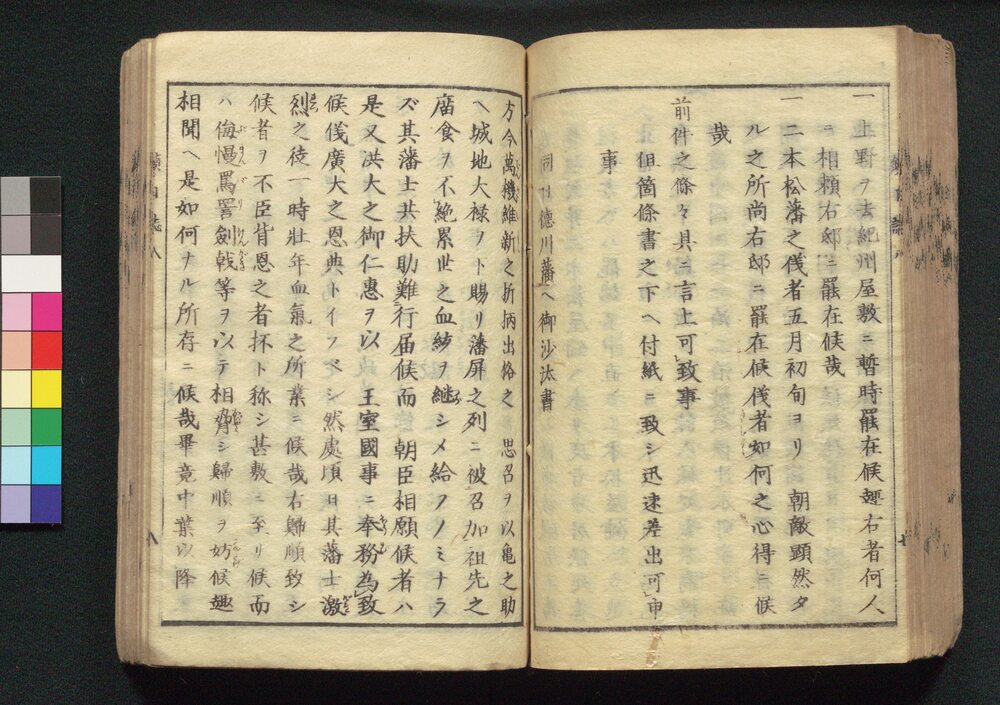 一上野ヲ去紀州屋敷ニ暫時罷在候趣右者何人
ニ相頼右邸ニ罷在候哉
一二本松藩之儀者五月初旬ヨリ 朝敵顕然タ
ル之所尚右邸ニ罷在候儀者如何之心得ニ候
哉
前件之條々具ニ言上可致事
但箇條書之下ヘ付紙ニ致シ迅速差出可申
事
同日徳川藩ヘ御沙汰書
方今萬機維新之折柄出格之 思召ヲ以亀之助
ヘ城地大禄ヲ下賜リ藩屏之列ニ被召加祖先之
廟食ヲ不絶累世之血緒ヲ継シメ給フノミナラ
ズ其藩士共扶助難行届候而 朝臣相願候者ハ
是又洪大之御仁惠ヲ以 王室國事ニ奉務為致
候儀廣大之恩典トイフベシ然處頃日其藩士激
烈之徒一時壮年血氣之所業ニ候哉右歸順致シ
候者ヲ不臣背恩之者抔ト称シ甚敷ニ至リ候而
ハ侮慢罵詈劍戟等ヲ以テ相脅シ歸順ヲ妨候趣
相聞ヘ是如何ナル所存ニ候哉畢竟中葉以降
七
八